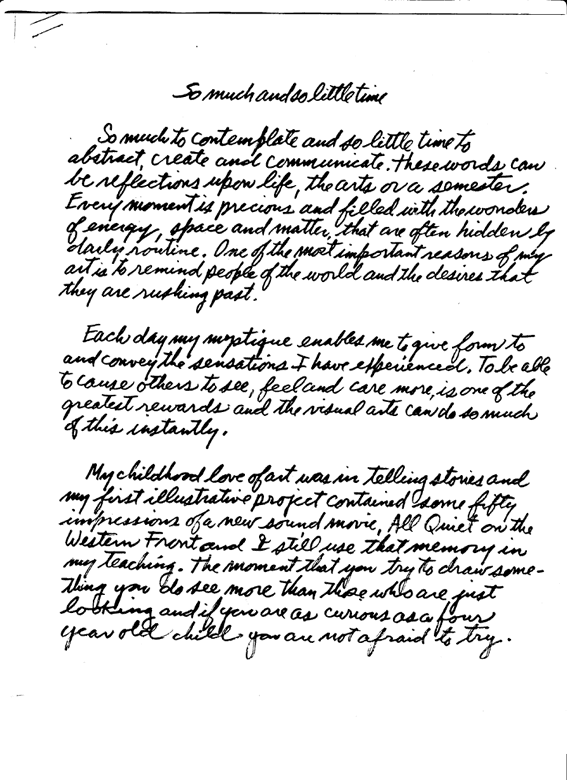 So much and so little time
So much to contemplate and so little time to
abstract, create and communicate. These words can
be reflections upon life, the arts or a semester.
Every moment is precious and filled with the wonders
of energy, space and matter, that are often hidden by
daily routine. One of the most important reasons of my
art is to remind people of the world and the desires that
they are rushing past.
Each day my mystique enables me to give form to
and convey the sensations I have experienced. To be able
to cause others to see, feel and care more, is one of the
greatest rewards and the visual arts can do so much
of this instantly.
My childhood love of art was in telling stories and
my first illustrative project contained some fifty
impressions of a new sound movie, All Quiet on the
Western Front and I still use that memory in
my teaching. The moment that you try to draw some-
thing you do see more than those who are just
looking and if you are as curious as a four
year old child you are not afraid to try.